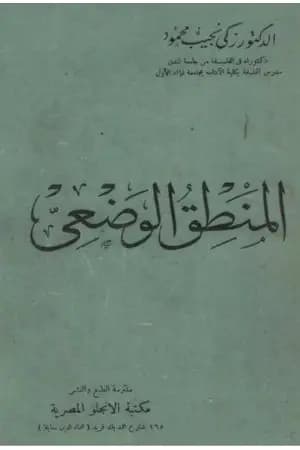 الدكتور زكي نجيب محمود
دكتوراه في الفلسفة من جامعة لندن
مدرس الفلسفة بكلية الآداب بجامعة فؤاد الأول
المنطق الوضعي
ملتزمة الطبع والنشر
مكتبة الانجلو المصرية
١٦٥ شارع محمد بك فريد ( عماد الدين سابقا )